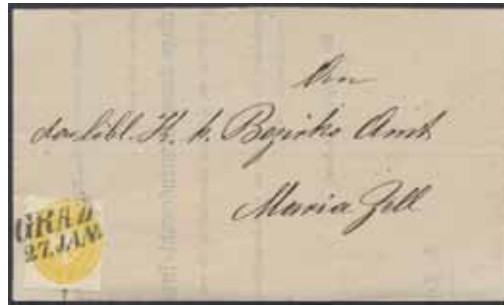 An
das löbl. K. k. Bezirks Amt
Maria Zell
GRAZ
27. JAN.